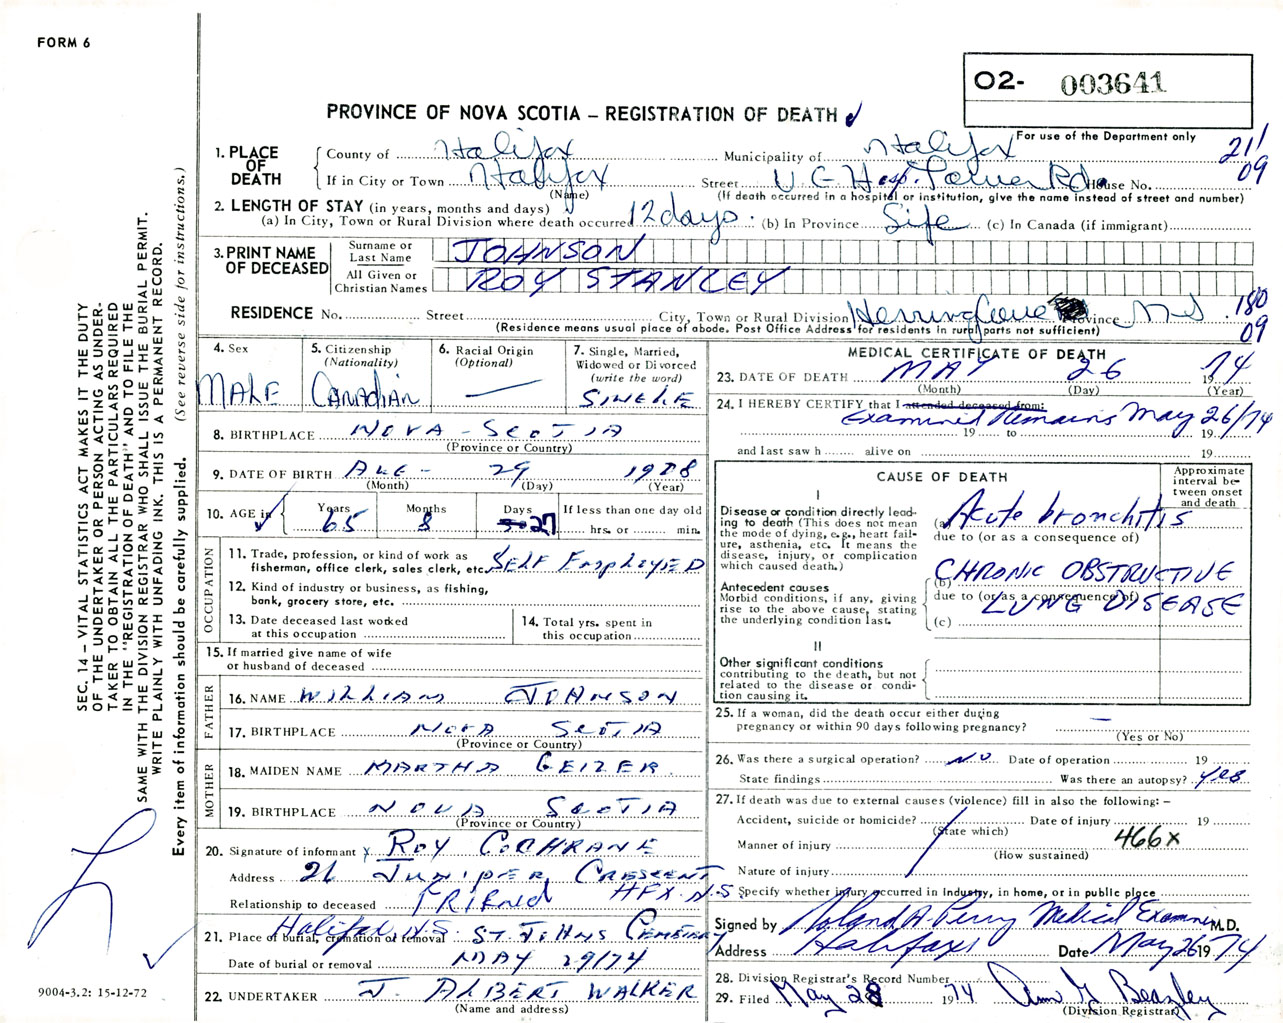 FORM 6
O2- 003641
PROVINCE OF NOVA SCOTIA – REGISTRATION OF DEATH
For use of the Department only
211
09
1. PLACE OF DEATH
County of Halifax Municipality of Halifax
If in City or Town Halifax Street V G Hosp. Tower Rd. House No.
(Name) (If death occurred in a hospital or institution, give the name instead of street and number)
2. LENGTH OF STAY (in years, months and days)
(a) In City, Town or Rural Division where death occurred 12 days (b) In Province Life (c) In Canada (if immigrant)
3. PRINT NAME OF DECEASED
Surname or Last Name JOHNSON
All Given or Christian Names ROY STANLEY
RESIDENCE No. Street City, Town or Rural Division Herring Cove Province N S
180
09
(Residence means usual place of abode. Post Office Address for residents in rural parts not sufficient)
4. Sex MALE
5. Citizenship (Nationality) Canadian
6. Racial Origin (Optional) —
7. Single, Married, Widowed or Divorced (write the word) SINGLE
8. BIRTHPLACE NOVA - SCOTIA
(Province or Country)
9. DATE OF BIRTH AUG - 29 1908
(Month) (Day) (Year)
10. AGE is Years 65 Months 8 Days 27 If less than one day old hrs. or min.
OCCUPATION
11. Trade, profession, or kind of work as fisherman, office clerk, sales clerk, etc. SELF EmployED
12. Kind of industry or business, as fishing, bank, grocery store, etc.
13. Date deceased last worked at this occupation
14. Total yrs. spent in this occupation
15. If married give name of wife or husband of deceased
FATHER
16. NAME WILLIAM JOHNSON
17. BIRTHPLACE NOVA SCOTIA
(Province or Country)
MOTHER
18. MAIDEN NAME MARTHA GEIZER
19. BIRTHPLACE NOVA SCOTIA
(Province or Country)
20. Signature of informant x ROY COCHRANE
Address 21 JUNIPER CRESCENT HFX. N.S.
Relationship to deceased FRIEND
21. Place of burial, cremation or removal Halifax N.S. ST JOHNS CEMETERY
Date of burial or removal MAY 29/74
22. UNDERTAKER J. ALBERT WALKER
(Name and address)
MEDICAL CERTIFICATE OF DEATH
23. DATE OF DEATH MAY 26 1974
(Month) (Day) (Year)
24. I HEREBY CERTIFY that I attended deceased from:
Examined Remains May 26/74
19 to 19
and last saw h alive on 19
CAUSE OF DEATH
Approximate interval between onset and death
I
Disease or condition directly leading to death (This does not mean the mode of dying, e.g., heart failure, asthenia, etc. It means the disease, injury, or complication which caused death.)
(a) Acute bronchitis
due to (or as a consequence of)
Antecedent causes
Morbid conditions, if any, giving rise to the above cause, stating the underlying condition last.
(b) CHRONIC OBSTRUCTIVE
due to (or as a consequence of)
LUNG DISEASE
(c)
II
Other significant conditions contributing to the death, but not related to the disease or condition causing it.
25. If a woman, did the death occur either during pregnancy or within 90 days following pregnancy? —
(Yes or No)
26. Was there a surgical operation? NO Date of operation 19
State findings Was there an autopsy? yes
27. If death was due to external causes (violence) fill in also the following: –
Accident, suicide or homicide? Date of injury 19
(State which)
466x
Manner of injury
(How sustained)
Nature of injury
Specify whether injury occurred in Industry, in home, or in public place
Signed by Roland A. Perry Medical Examiner M.D.
Address Halifax Date May 26 1974
28. Division Registrar's Record Number
29. Filed May 28 1974 Ann G Beazley
(Division Registrar)
SEC. 14 – VITAL STATISTICS ACT MAKES IT THE DUTY
OF THE UNDERTAKER OR PERSON ACTING AS UNDER-
TAKER TO OBTAIN ALL THE PARTICULARS REQUIRED
IN THE "REGISTRATION OF DEATH" AND TO FILE THE
SAME WITH THE DIVISION REGISTRAR WHO SHALL ISSUE THE BURIAL PERMIT.
WRITE PLAINLY WITH UNFADING INK. THIS IS A PERMANENT RECORD.
Every item of information should be carefully supplied. (See reverse side for instructions.)
9004-3.2: 15-12-72